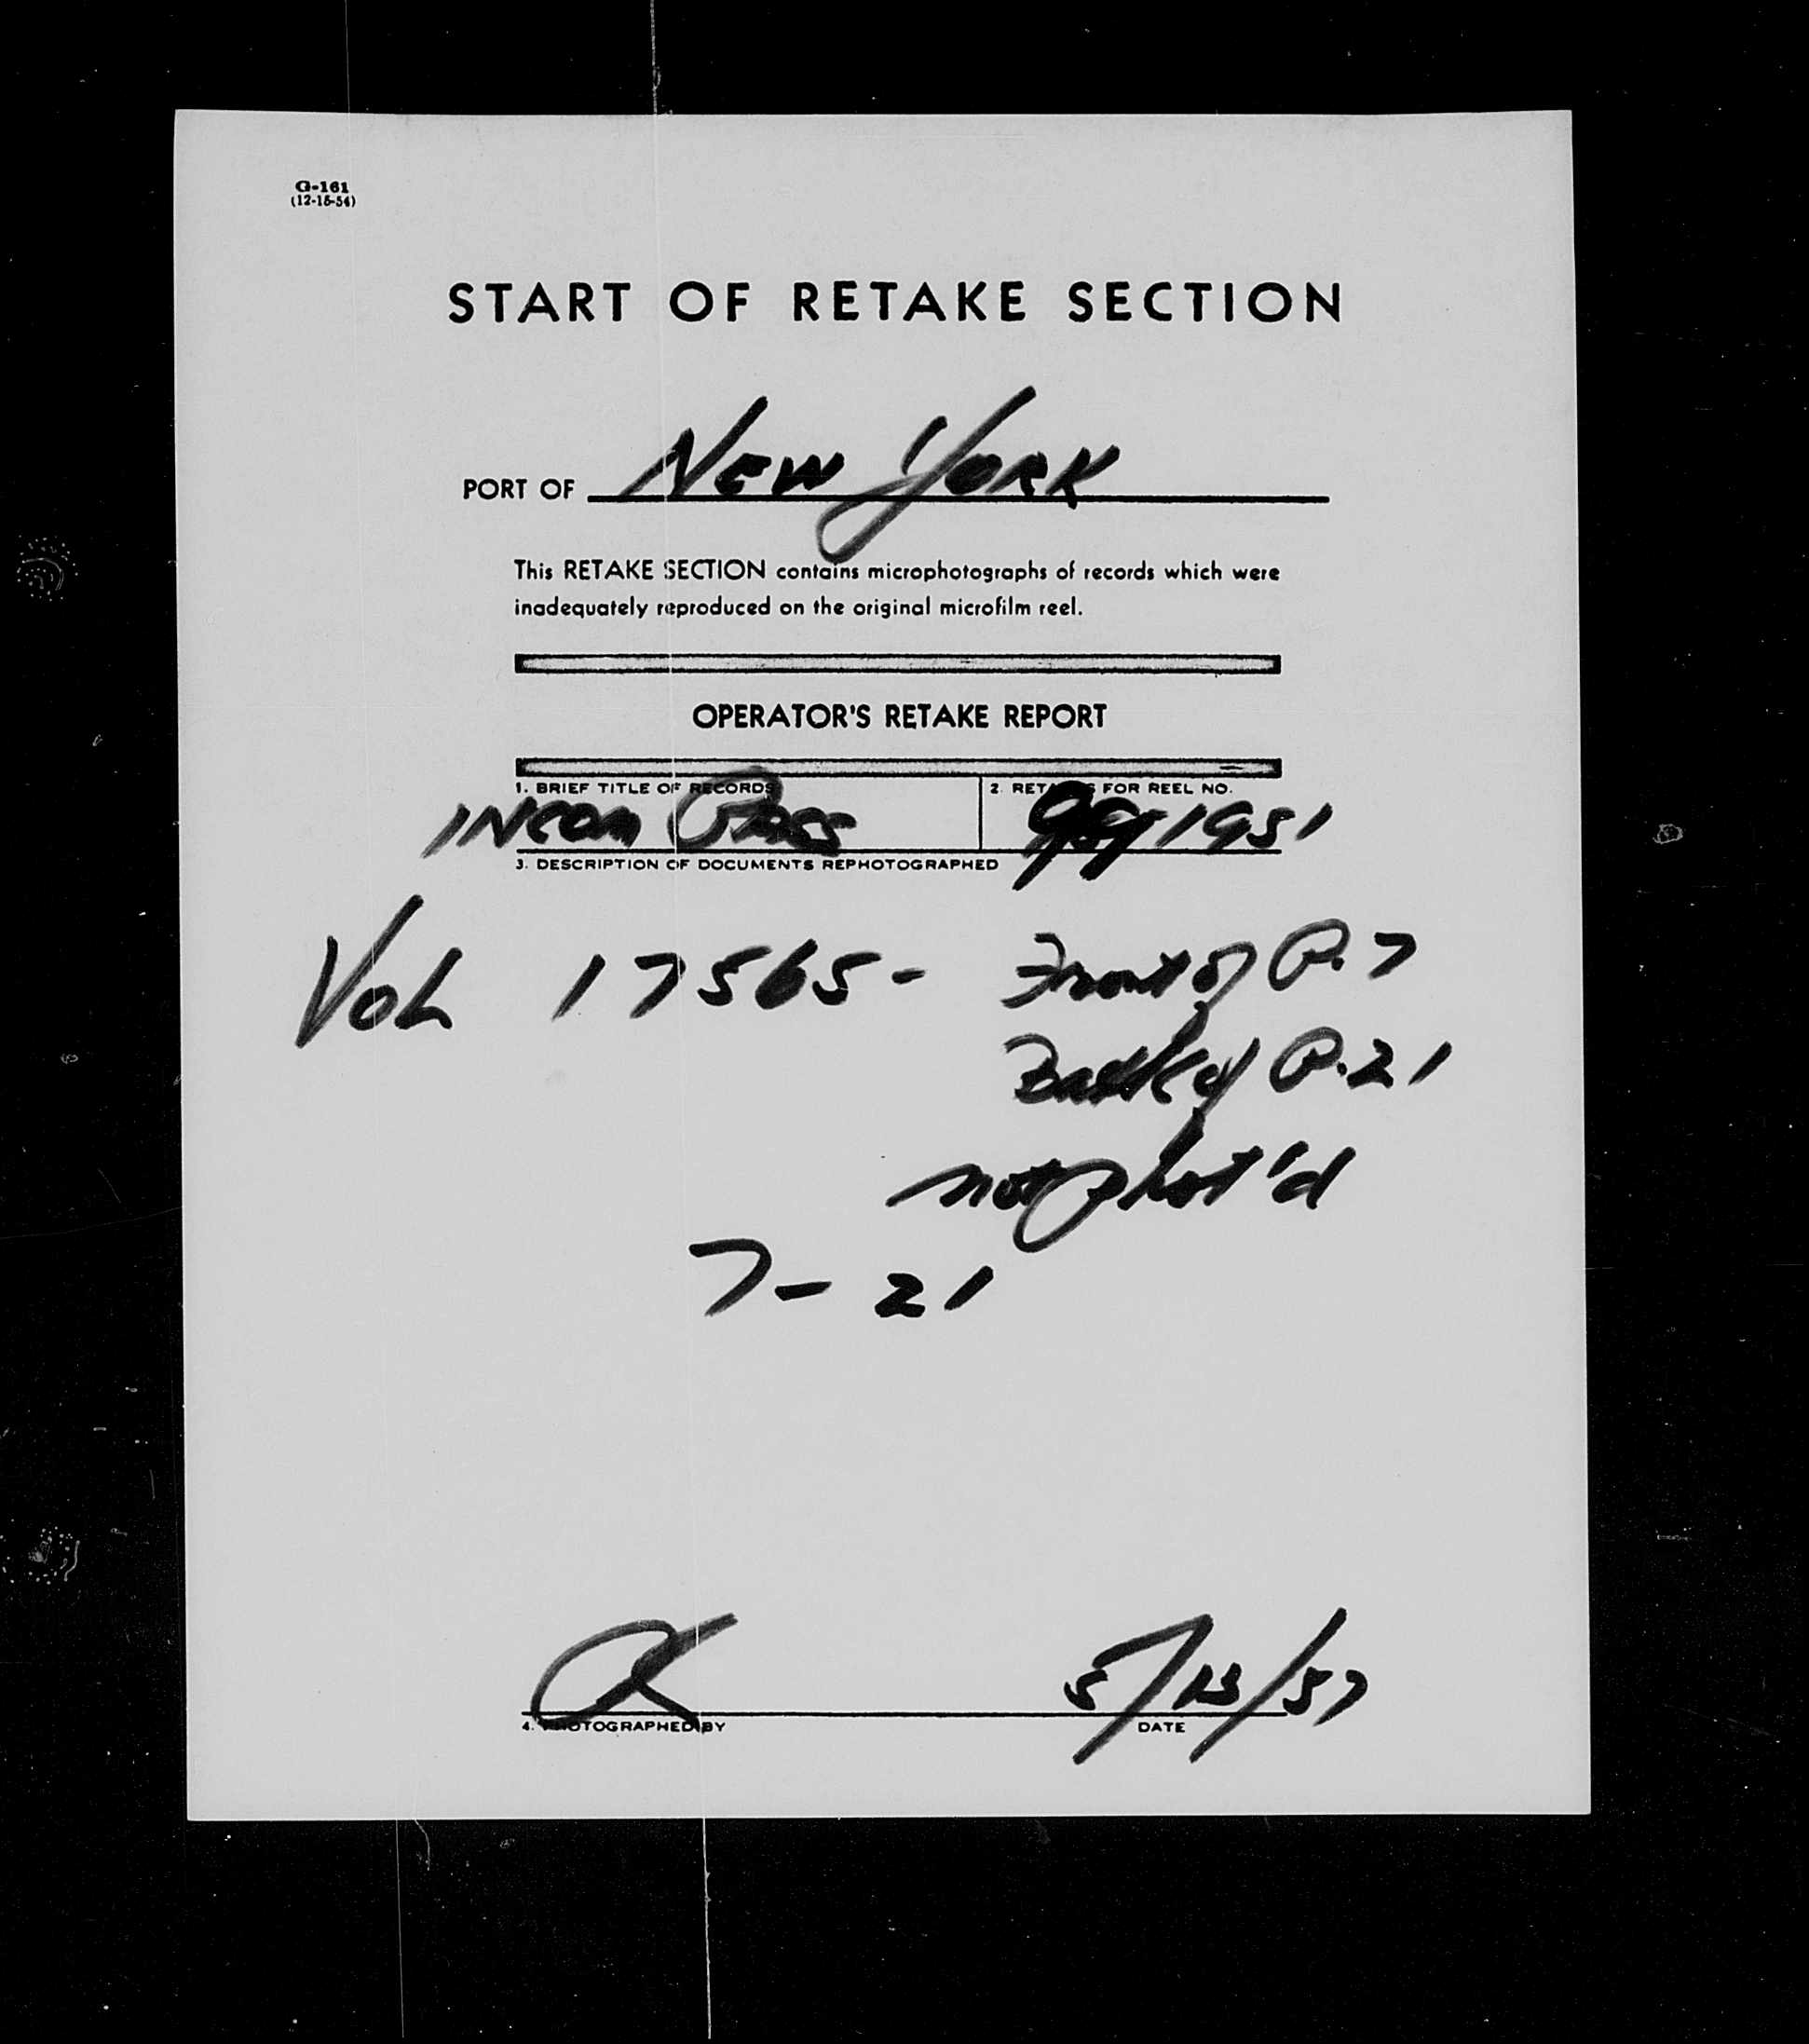 G-161
(12-15-54)
START OF RETAKE SECTION
PORT OF NEW YORK
This RETAKE SECTION contains microphotographs of records which were
inadequately reproduced on the original microfilm reel.
OPERATOR'S RETAKE REPORT
1. BRIEF TITLE OF RECORDS 2. RETAKES FOR REEL NO.
INCOM PASS 1951
3. DESCRIPTION OF DOCUMENTS REPHOTOGRAPHED
VOL 17565- Front of P. 7
Back of P. 21
not phot'd
7-21
5/13/57
4. PHOTOGRAPHED BY DATE